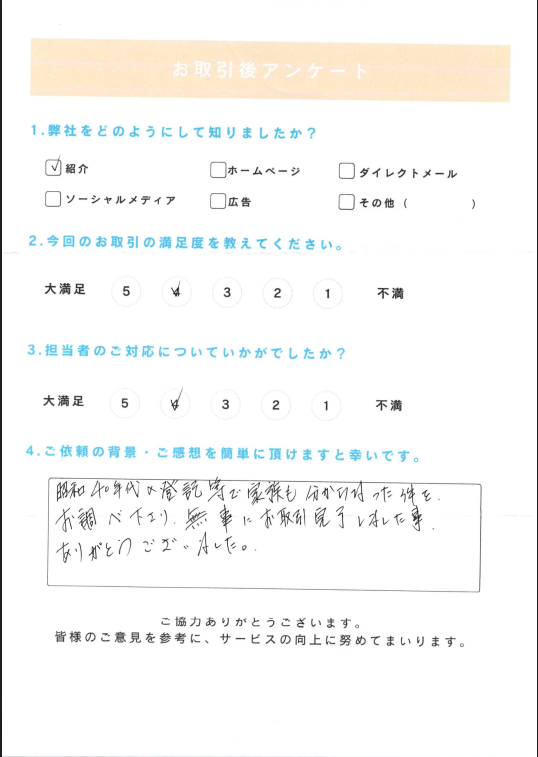 お取引後アンケート
1.弊社をどのようにして知りましたか？
紹介 ホームページ ダイレクトメール
ソーシャルメディア 広告 その他（ ）
2.今回のお取引の満足度を教えてください。
大満足 5 4 3 2 1 不満
3.担当者のご対応についていかがでしたか？
大満足 5 4 3 2 1 不満
4.ご依頼の背景・ご感想を簡単に頂けますと幸いです。
昭和40年代の登記等で家族も分からなかった件を、
お調べ下さり、無事にお取引完了しました事、
ありがとうございました。
ご協力ありがとうございます。
皆様のご意見を参考に、サービスの向上に努めてまいります。